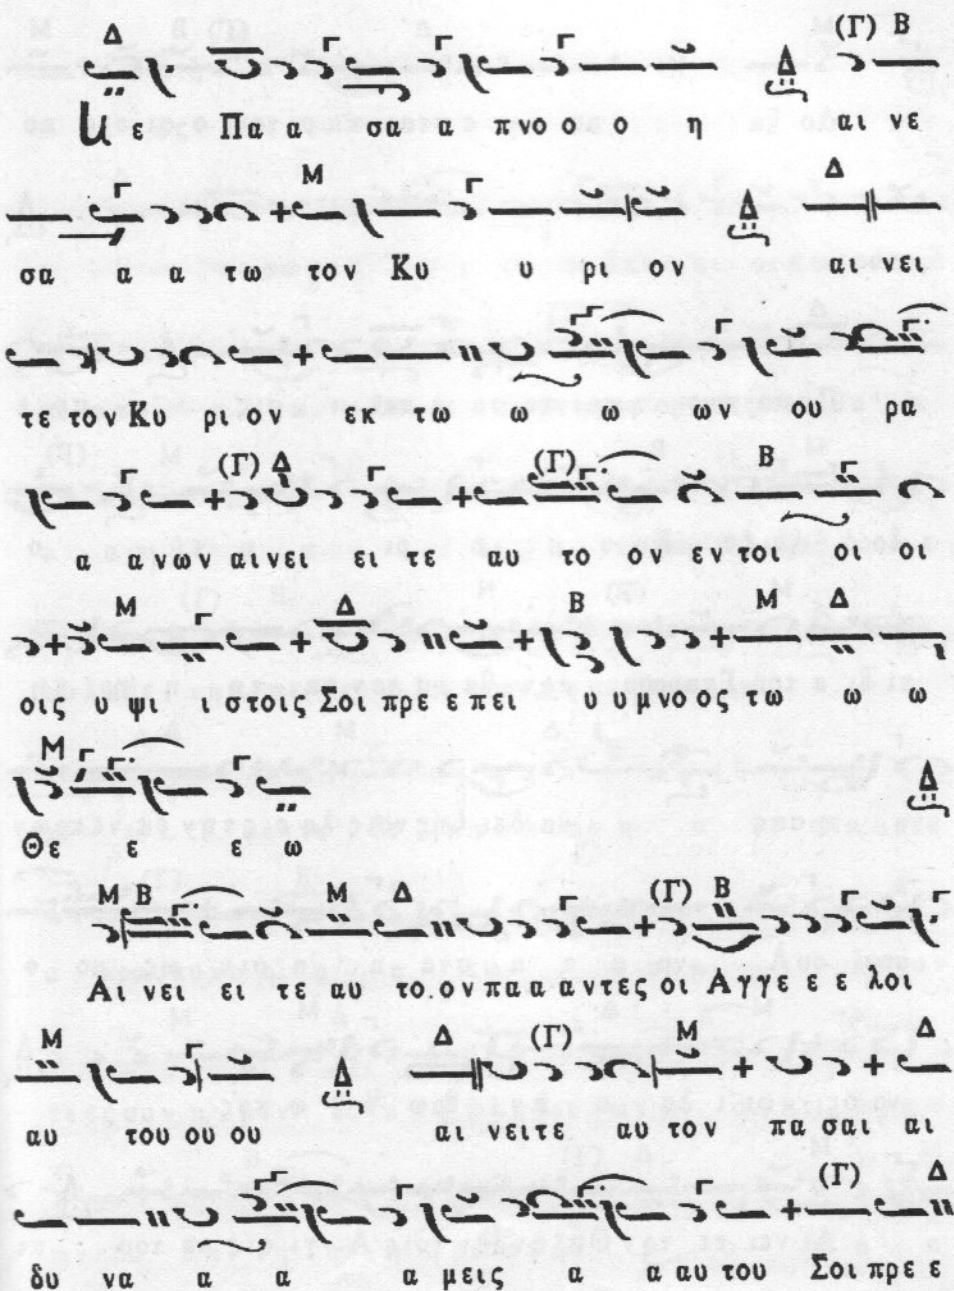 Δ (Γ) Β
Με Πα α σα α πνο ο ο η Δ αι νε
Μ Δ
σα α α τω τον Κυ υ ρι ον Δ αι νει
τε τον Κυ ρι ον εκ τω ω ω ων ου ρα
(Γ) Δ (Γ) Β
α α νων αι νει ει τε αυ το ον εν τοι οι οι
Μ Δ Β Μ Δ
οις υ ψι ι στοις Σοι πρε ε πει υ υ μνο ος τω ω ω
Μ
Θε ε ε ω Δ
Μ Β Μ Δ (Γ) Β
Αι νει ει τε αυ το ον πα α αντες οι Αγγε ε ε λοι
Μ Δ (Γ) Μ Δ
αυ του ου ου Δ αι νειτε αυ τον πα σαι αι
(Γ) Δ
δυ να α α α μεις α α αυ του Σοι πρε ε